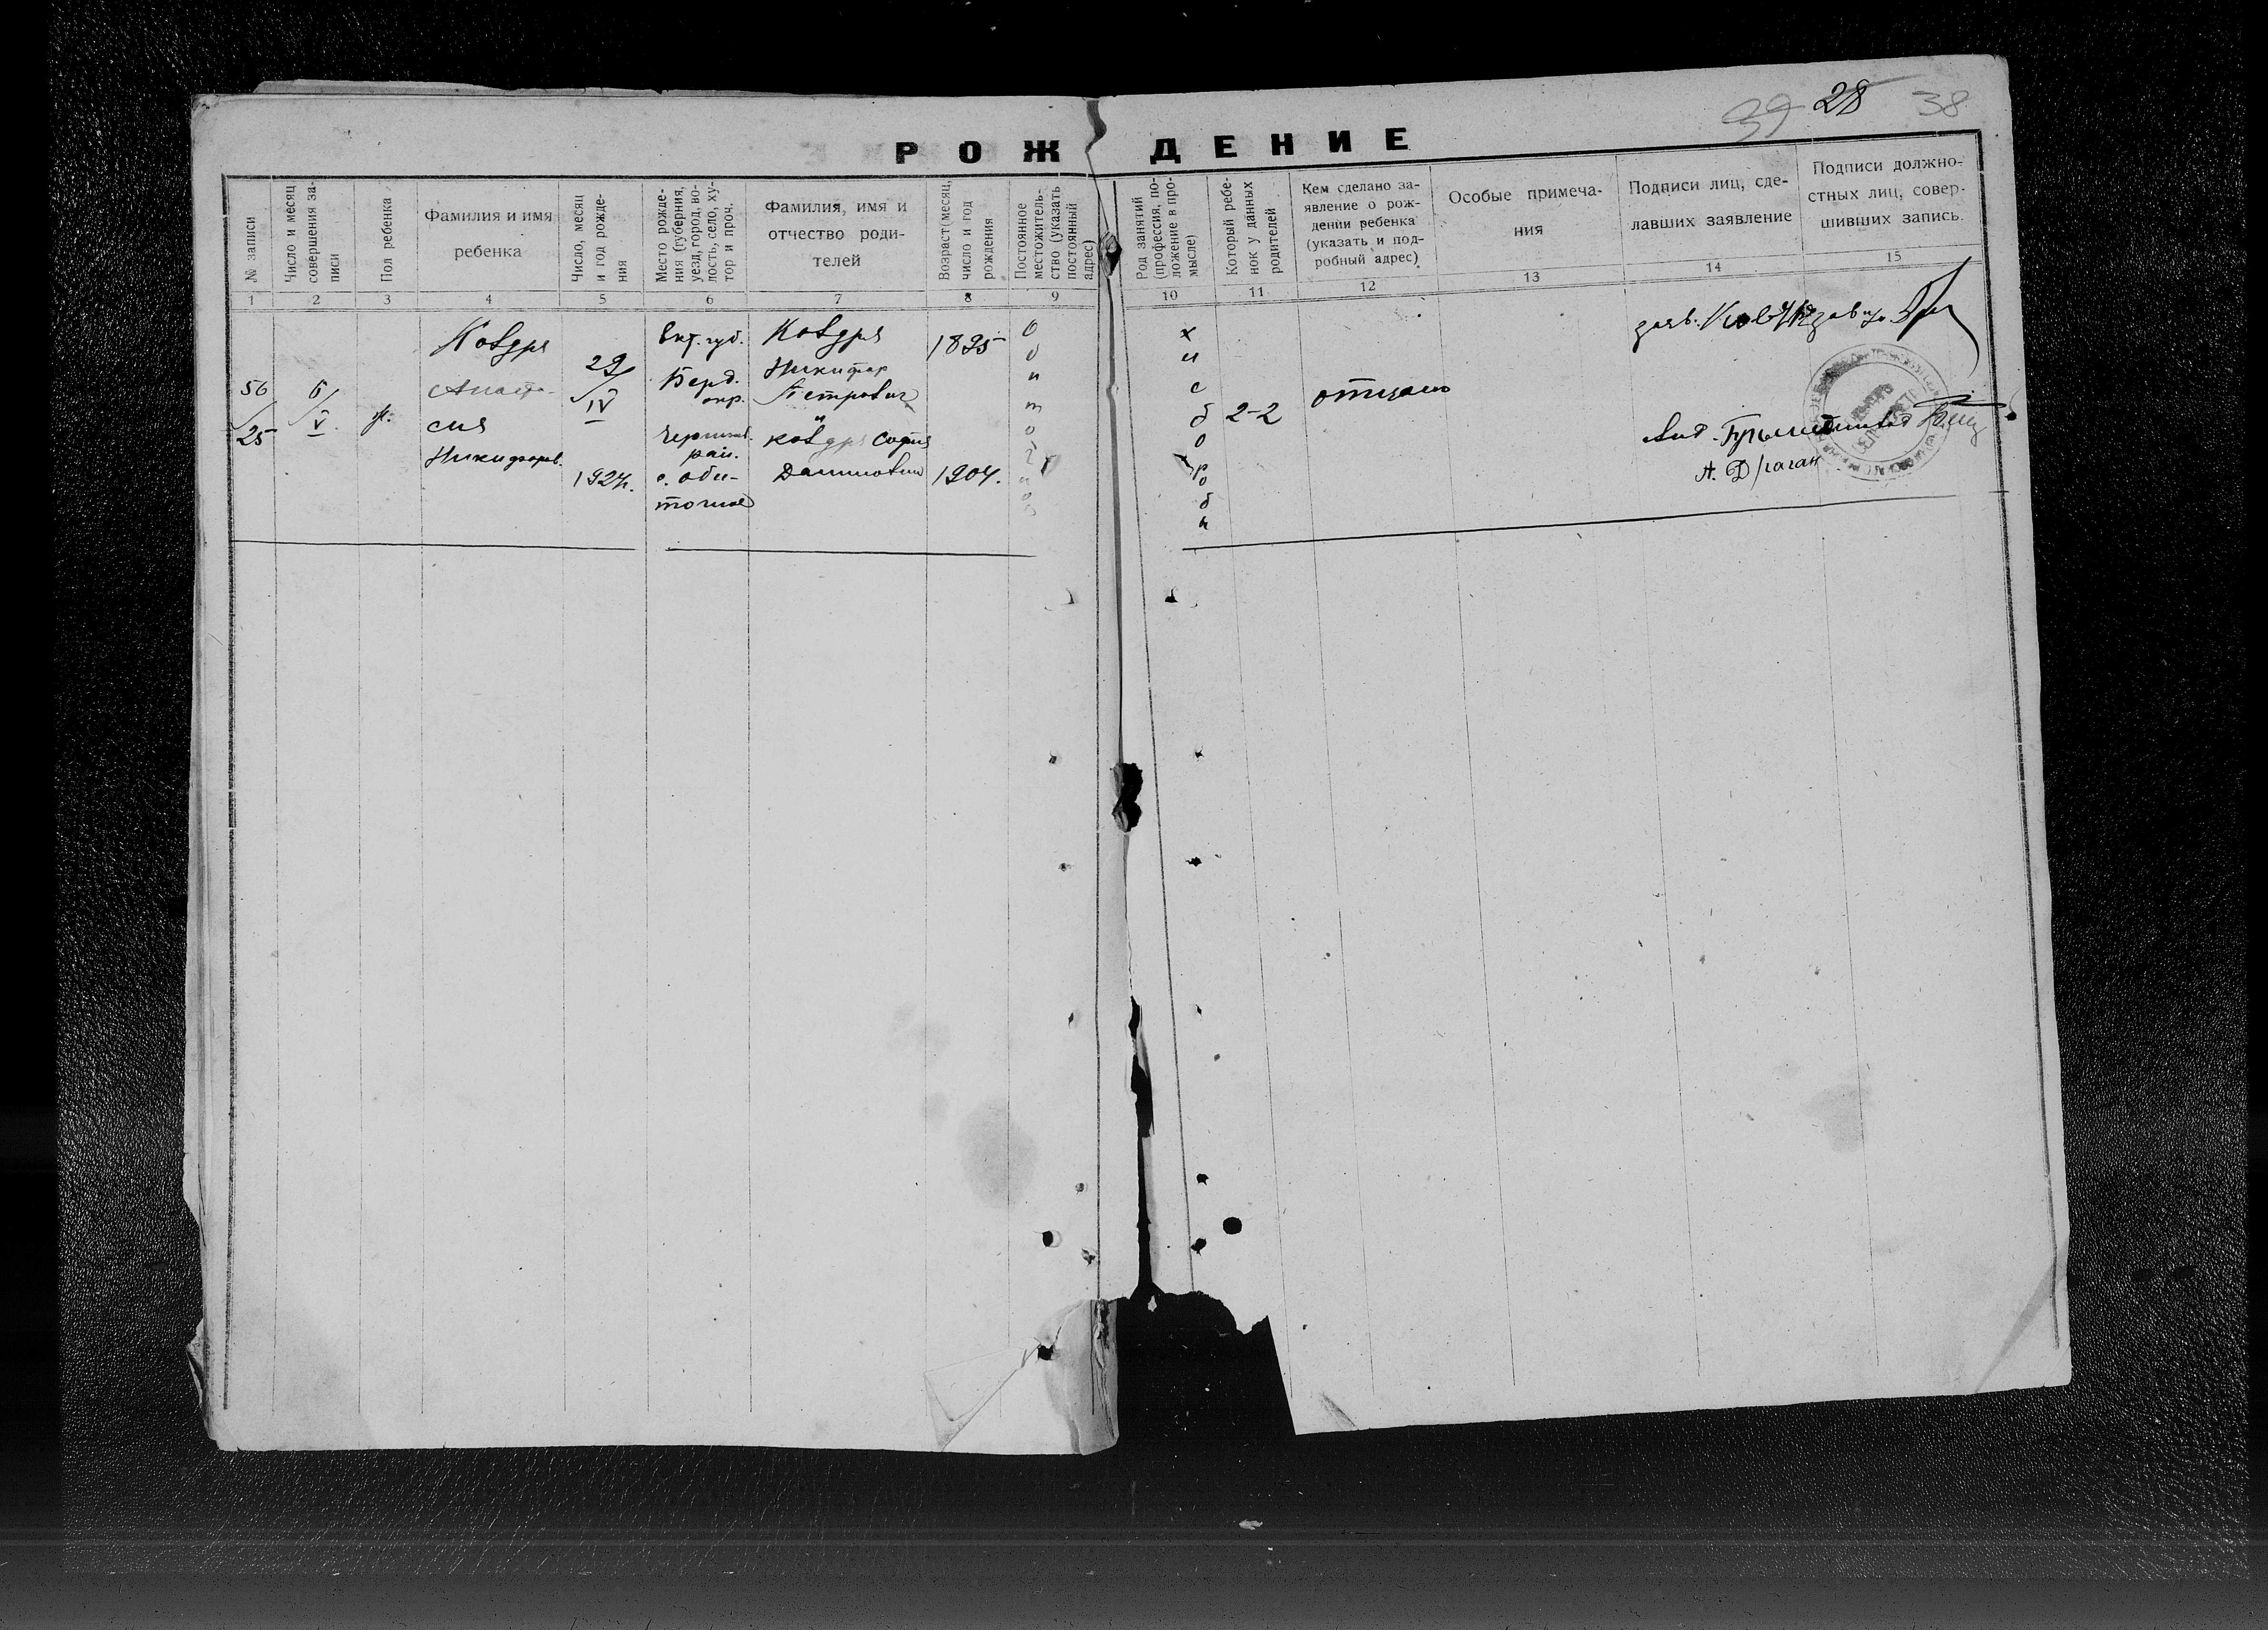 39 28 38
РОЖДЕНИЕ
№ записи
Число и месяц
совершения за-
писи
Пол ребенка
Фамилия и имя
ребенка
Число, месяц
и год рожде-
ния
Место рожде-
ния (губерния,
уезд, город, во-
лость, село, ху-
тор и проч.
Фамилия, имя и
отчество роди-
телей
Возраст (месяц,
число и год
рождения
Постоянное
местожитель-
ство (указать
постоянный
адрес)
Род занятий
(профессия, по-
ложение в про-
мысле)
Который ребе-
нок у данных
родителей
Кем сделано за-
явление о рож-
дении ребенка
(указать и под-
робный адрес)
Особые примеча-
ния
Подписи лиц, сде-
лавших заявление
Подписи должно-
стных лиц, совер-
шивших запись.
1 2 3 4 5 6 7 8 9 10 11 12 13 14 15
56/25
6/V
ж.
Ковдря
Анаста-
сия
Никифоров.
29/IV
1924.
Ект. губ.
Берд.
окр.
Черниг.
рай.
с. Оби-
точное
Ковдря
Никифор
Петрович
и
Ковдря София
Даниловна
1895
1904.
О
б
и
т
о
ч
н
о
е
х
л
е
б
о
р
о
б
ы
2-2
отцом
заяв.
А. Драган